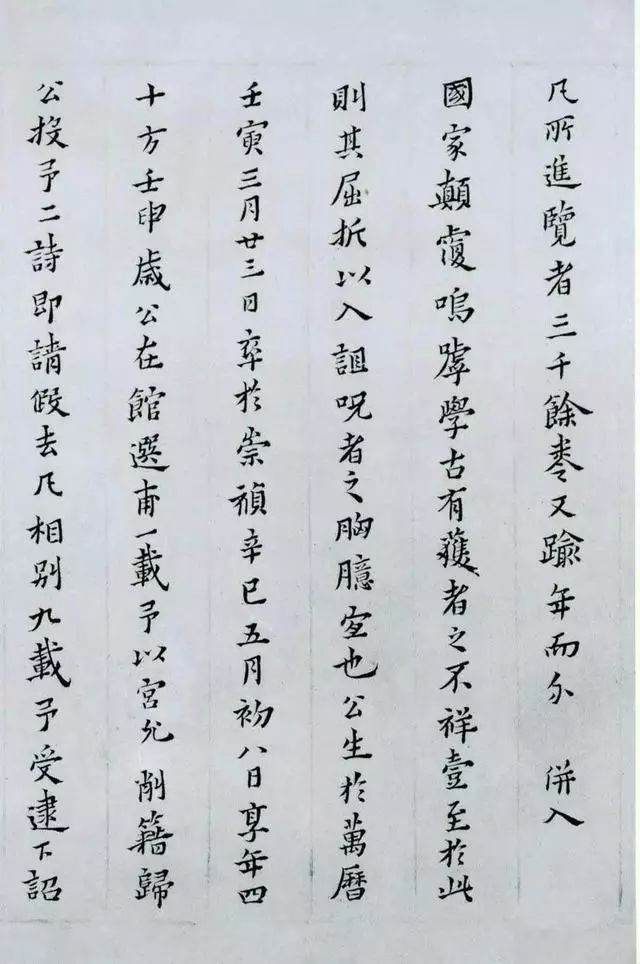 凡所進覽者三千餘卷又踰年而 併入
國家顛覆嗚嘑學古有獲者之不祥壹至於此
則其屈折以入詛呪者之胸臆宜也公生於萬曆
壬寅三月廿三日卒於崇禎辛巳五月初八日享年四
十方壬申歲公在館選甫一載予以宮允削籍歸
公投予二詩即請假去凡相別九載予受逮下詔